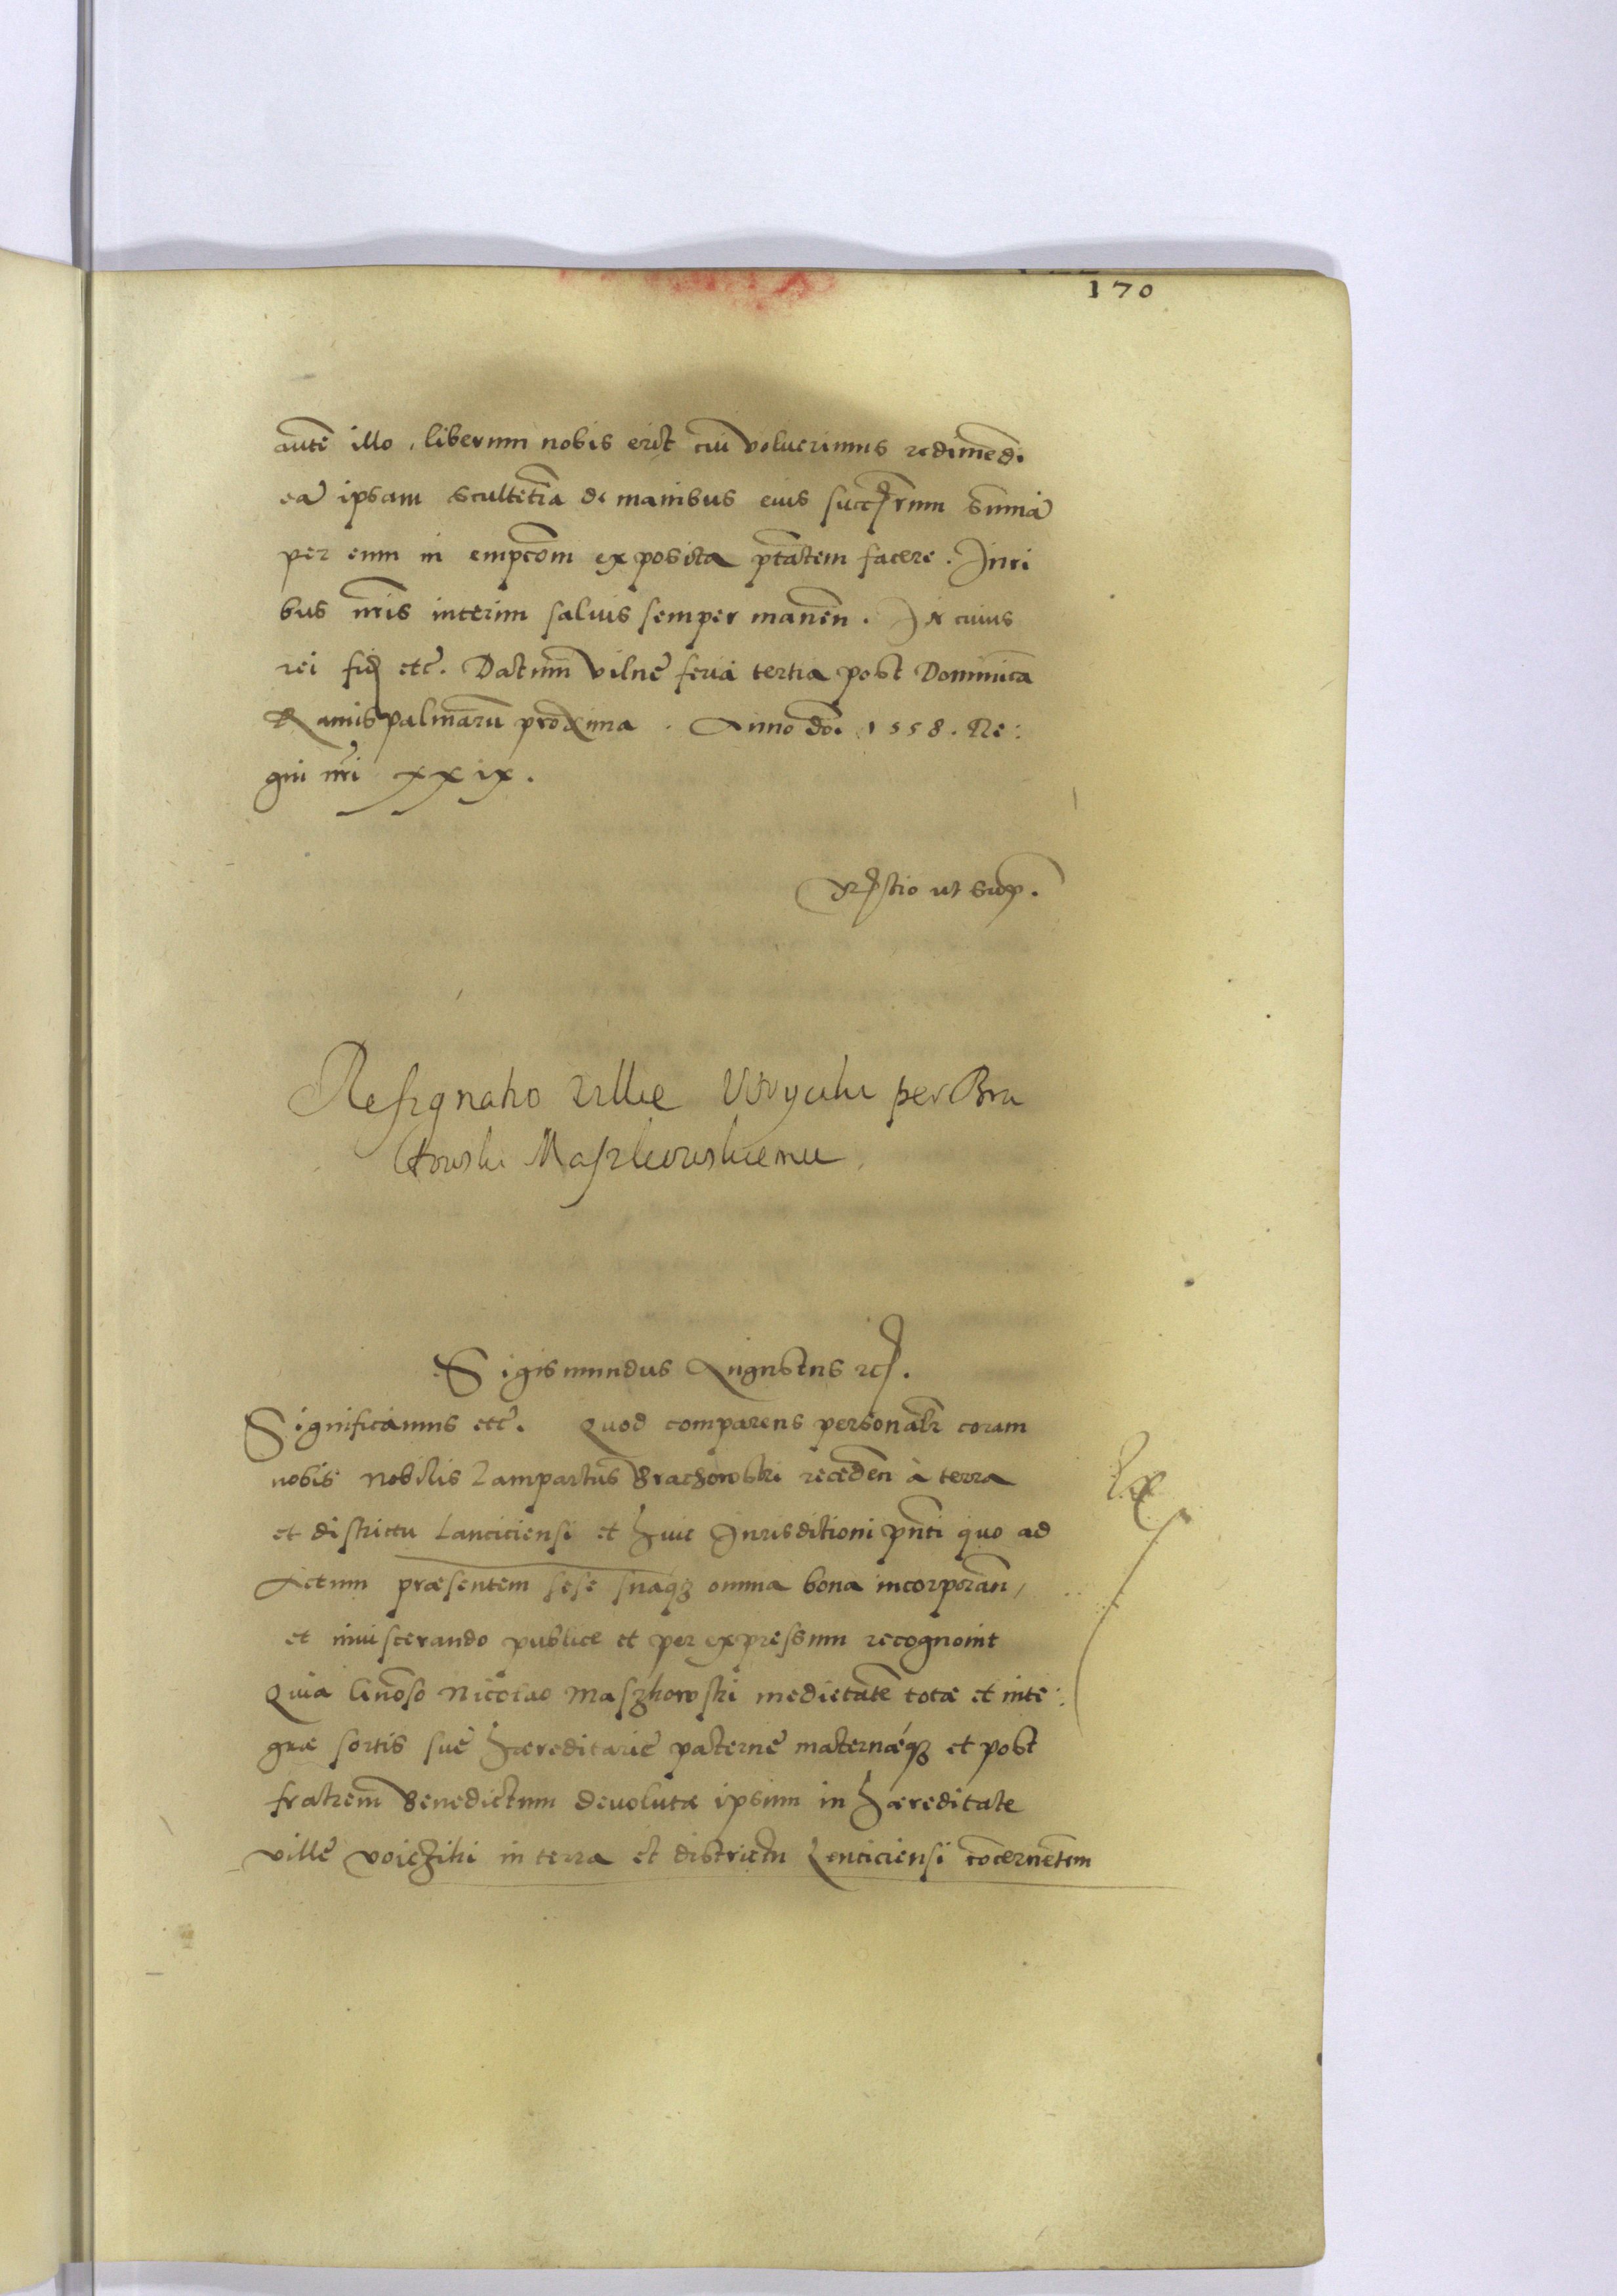 170
autē illo, liberum nobis erit cū voluerimus redimēd.
eā ipsam scultetiā de manibus eius succrum sūmā
per eum in empcōm exposita ptātem facere. Juri
bus nris interim salvis semper manēn. In cuius
rei fid etc. Datum Vilnę feria tertia post Dominicā
Ramispalmarū proxima. Anno dō. 1558. Re:
gni nri xxix.
Restio ut sup.
Resignatio villae per Bra
Maszkowskiemu
Sigismundus Augustus etc.
Significamus etc. Quod comparens personalr coram
nobis Nobilis Lampartus Brachowski recedēn à terra
et districtu Lanciciensi et huic Jurisditioni pnti quo ad
Actum praesentem sese suaq₃ omnia bona incorporān,
et inviscerando publice et per expressum recognovit
Quia Gnōso Nicolao Maszkowski medietatē totae et inte:
grae sortis suę haereditarię paternę maternaéq₃ et post
fratrem Benedictum devolutae ipsum in haereditate
villę voiczikі in terra et districtu Lenciciensi cōcernētem